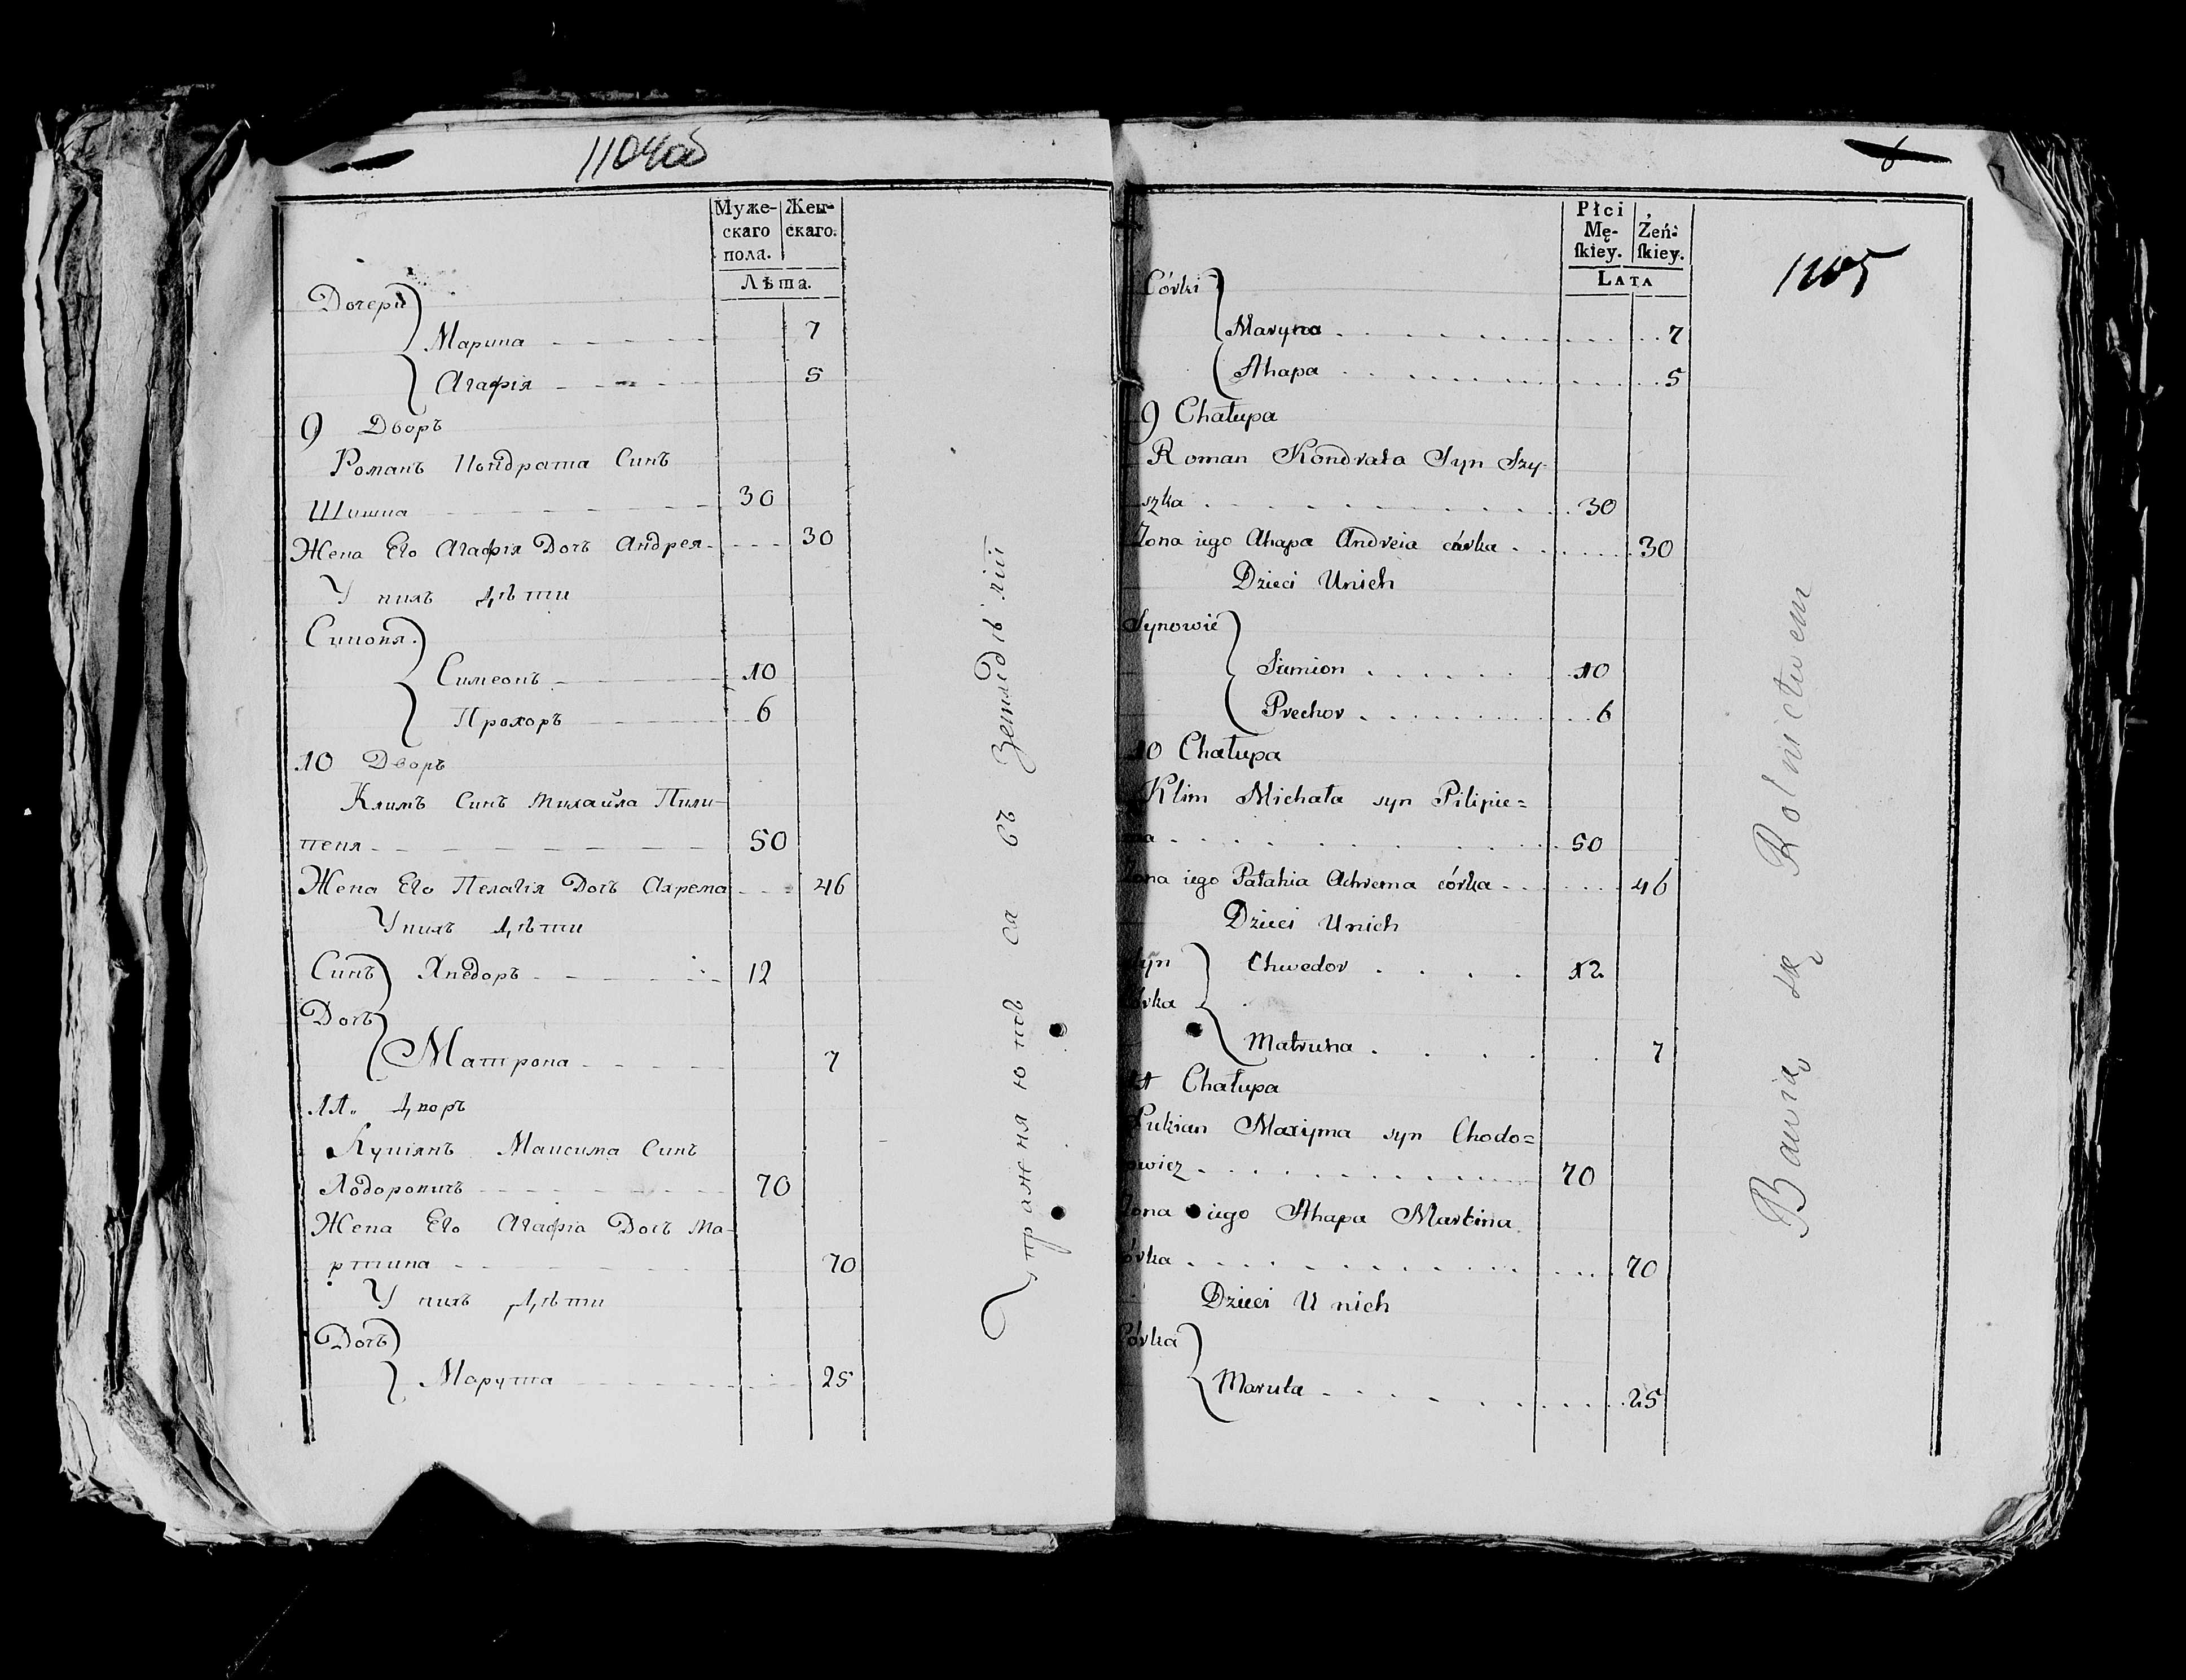 1104об
Муже-
скаго
пола.
Жен-
скаго.
Лѣта.
Дочери
Марина 7
Агафія 5
9 Дворъ
Романъ Кондрата Синъ
Шишка 30
Жена Его Агафія Дочь Андрея 30
У нихъ Дѣти
Симеонъ 10
Прохоръ 6
10 Дворъ
Климъ Синъ Михайла Пили-
пеня 50
Жена Его Пелагія Дочь Ахрема 46
У нихъ Дѣти
Синъ Хведоръ 12
Дочь
Матрона 7
11. Дворъ
Лукіянъ Максима Синъ
Ходоровичъ 70
Жена Его Агафіа Дочь Ма-
ртина 70
У нихъ Дѣти
Дочь
Марута 25
Упражняются въ Земледѣліи
Płci
Mę-
ſkiey.
Żeń-
ſkiey.
Lata
1105
Córki
Maryna 7
Ahapa 5
9 Chałupa
Roman Kondrata Syn Szy-
szka 30
Żona iego Ahapa Andreia córka 30
Dzieci Unich
Synowie
Siemion 10
Prochor 6
10 Chałupa
Klim Michała syn Pilipie=
na 50
Żona iego Pałahia Achrema córka 46
Dzieci Unich
Syn Chwedor 12
córka
Matruna 7
11 Chałupa
Łukian Maxyma syn Chodo=
rowicz 70
Żona iego Ahapa Martina
córka 70
Dzieci U nich
Córka
Maruta 25
Bawią się Rolnictwem